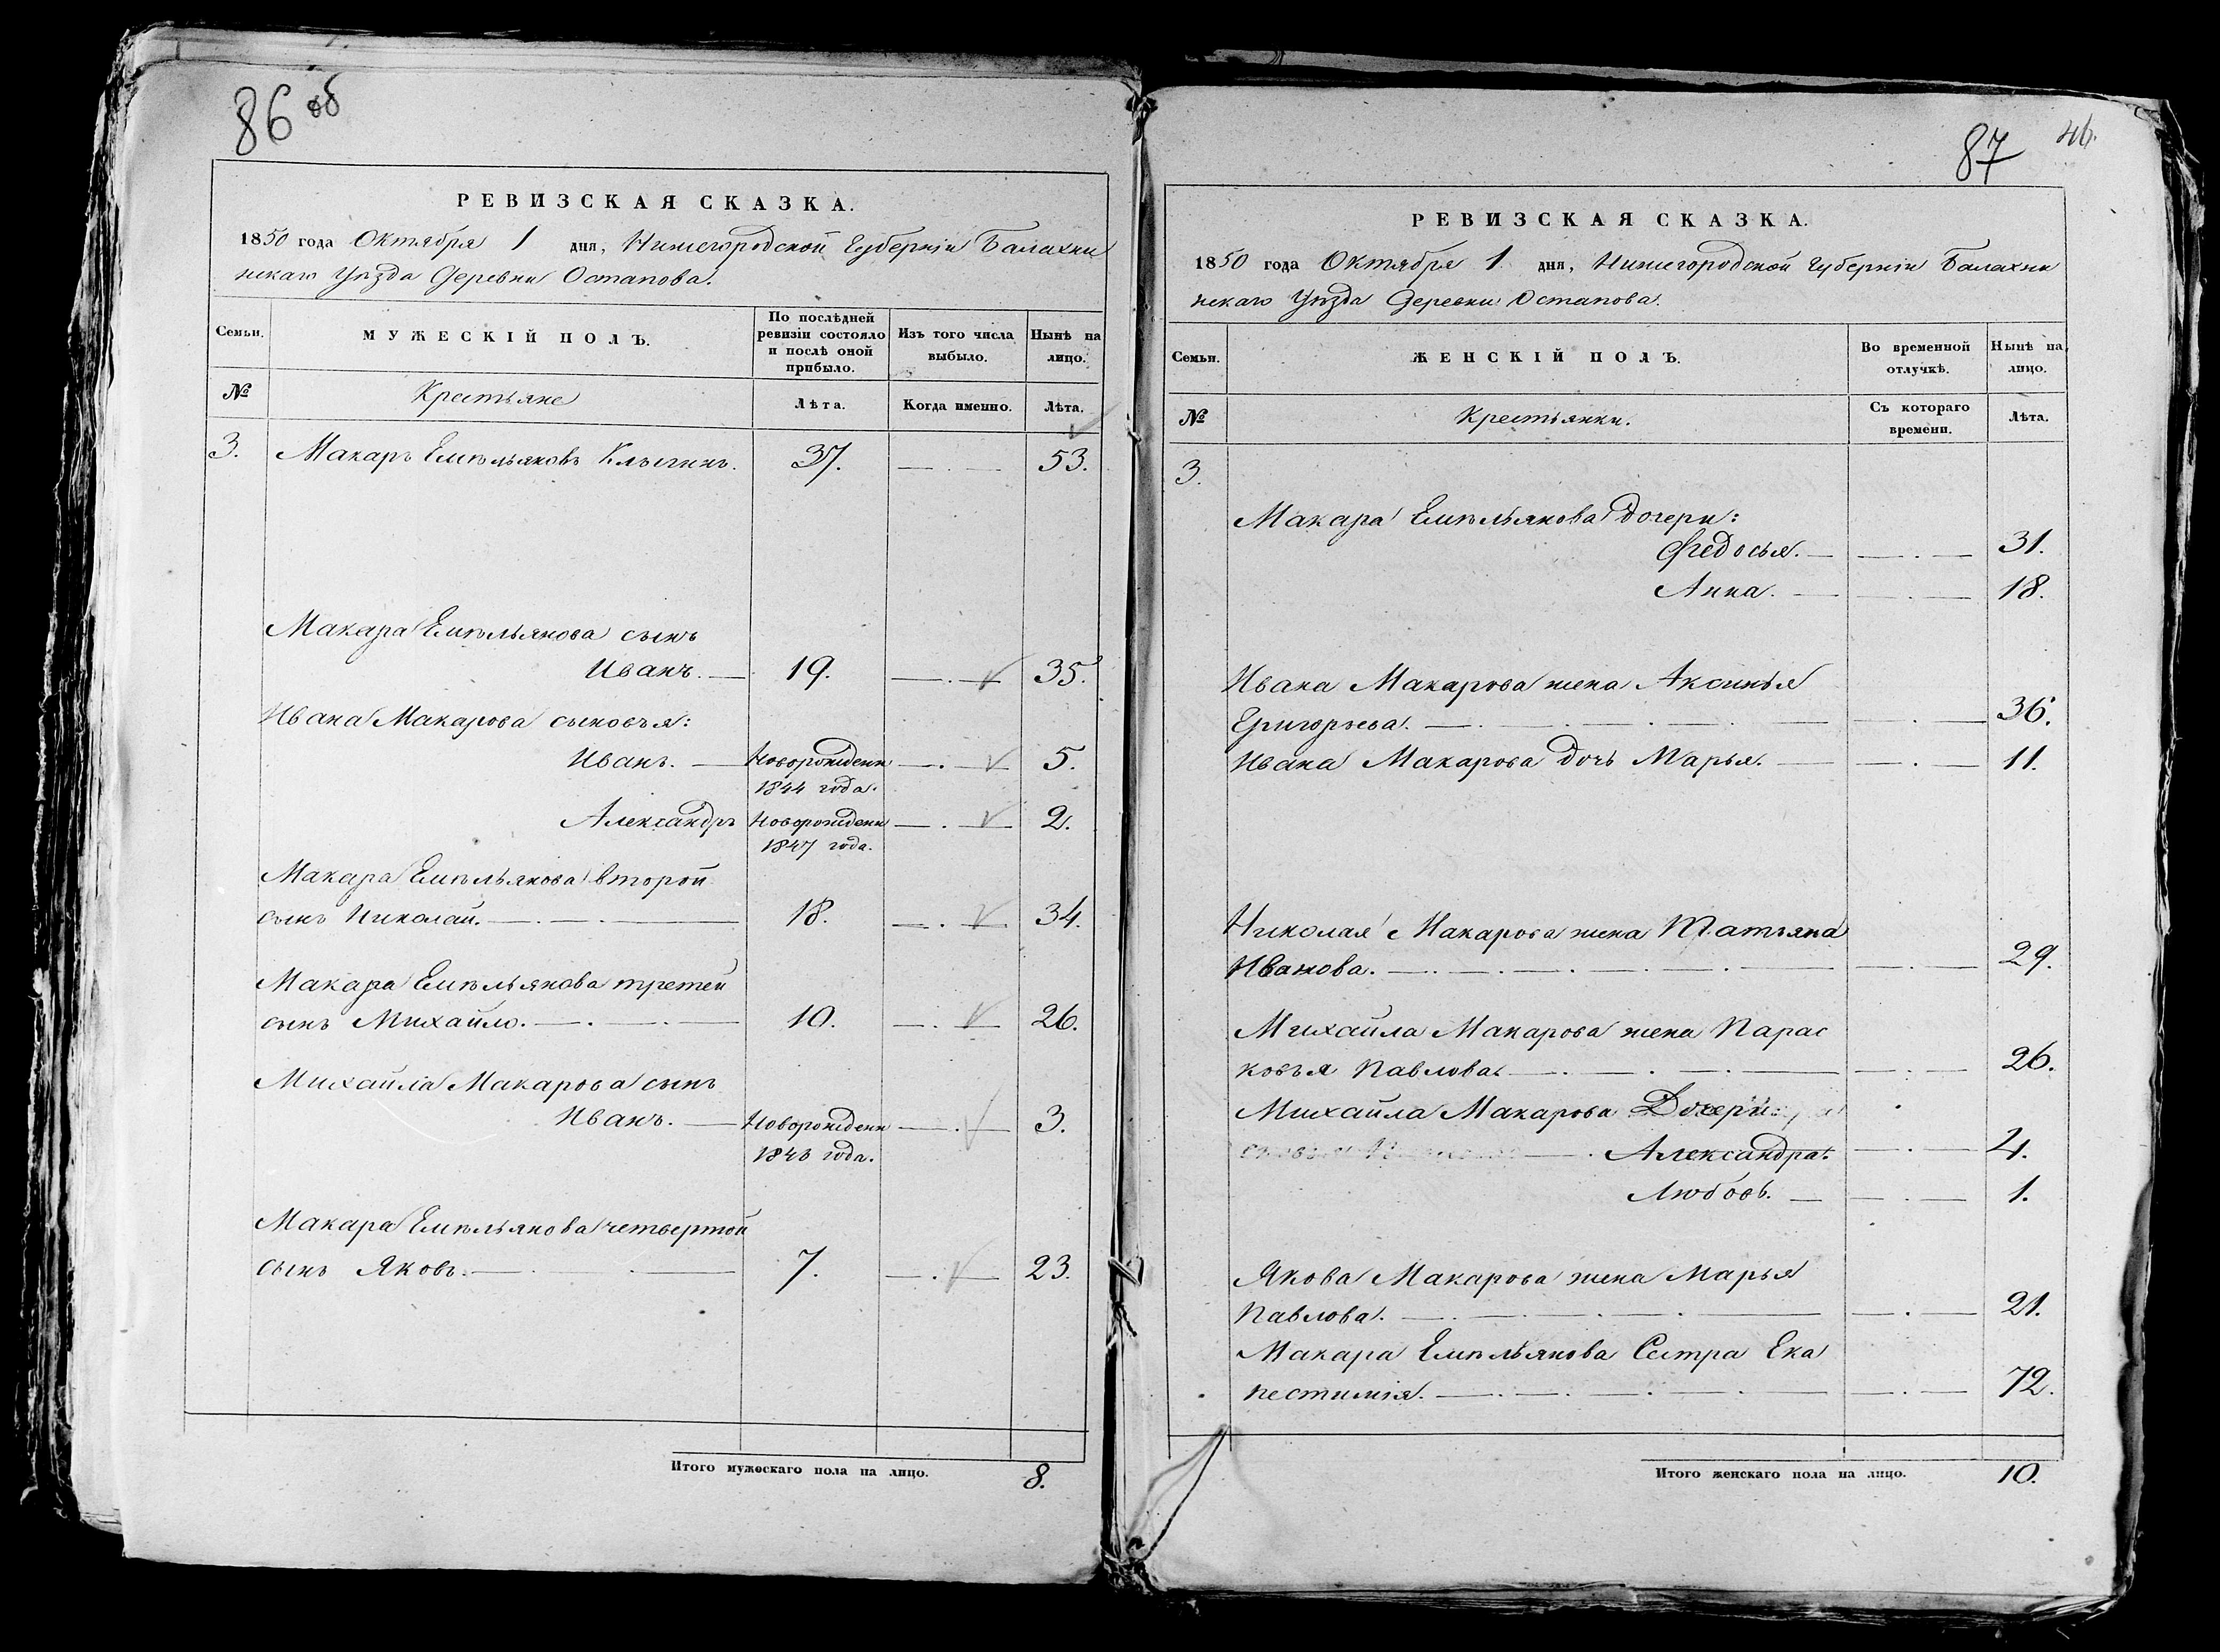 86 об
РЕВИЗСКАЯ СКАЗКА.
1850 года Октября 1 дня, Нижегородской Губерніи Балахни
нскаго Уѣзда Деревни Остапова.
Семьи.
МУЖЕСКІЙ ПОЛЪ.
По послѣдней ревизіи состояло и послѣ оной прибыло.
Изъ того числа выбыло.
Нынѣ на лицо.
№
Крестьяне
Лѣта.
Когда именно.
Лѣта.
3. Макаръ Емельяновъ 37. 53.
Макара Емельянова сынъ
Иванъ. 19. 35.
Ивана Макарова сыновья:
Иванъ. Новорожденн 5.
1844 года.
Александръ Новорожденн 2.
1847 года.
Макара Емельянова второй
сынъ Николай. 18. 34.
Макара Емельянова третей
сынъ Михайло. 10. 26.
Михайла Макарова сынъ
Иванъ. Новорожденн 3.
года.
Макара Емельянова четвертой
сынъ Яковъ. 7. 23.
Итого мужескаго пола на лицо. 8.
87 46.
РЕВИЗСКАЯ СКАЗКА.
1850 года Октября 1 дня, Нижегородской Губерніи Балахни
нскаго Уѣзда Деревни Остапова.
Семьи.
ЖЕНСКІЙ ПОЛЪ.
Во временной отлучкѣ.
Нынѣ на лицо.
№
Крестьянки.
Съ котораго времени.
Лѣта.
3.
Макара Емельянова дочери:
Федосья. 31.
Анна. 18.
Ивана Макарова жена Аксинья
Григорьева. 36.
Ивана Макарова дочь Марья. 11.
Николая Макарова жена Татьяна
Иванова. 29.
Михайла Макарова жена Парас
ковья Павлова. 26.
Михайла Макарова Дочери:
Александра. 4.
Любовь. 1.
Якова Макарова жена Марья
Павлова. 21.
Макара Емельянова Сестра Ека
пестимія. 72.
Итого женскаго пола на лицо. 10.